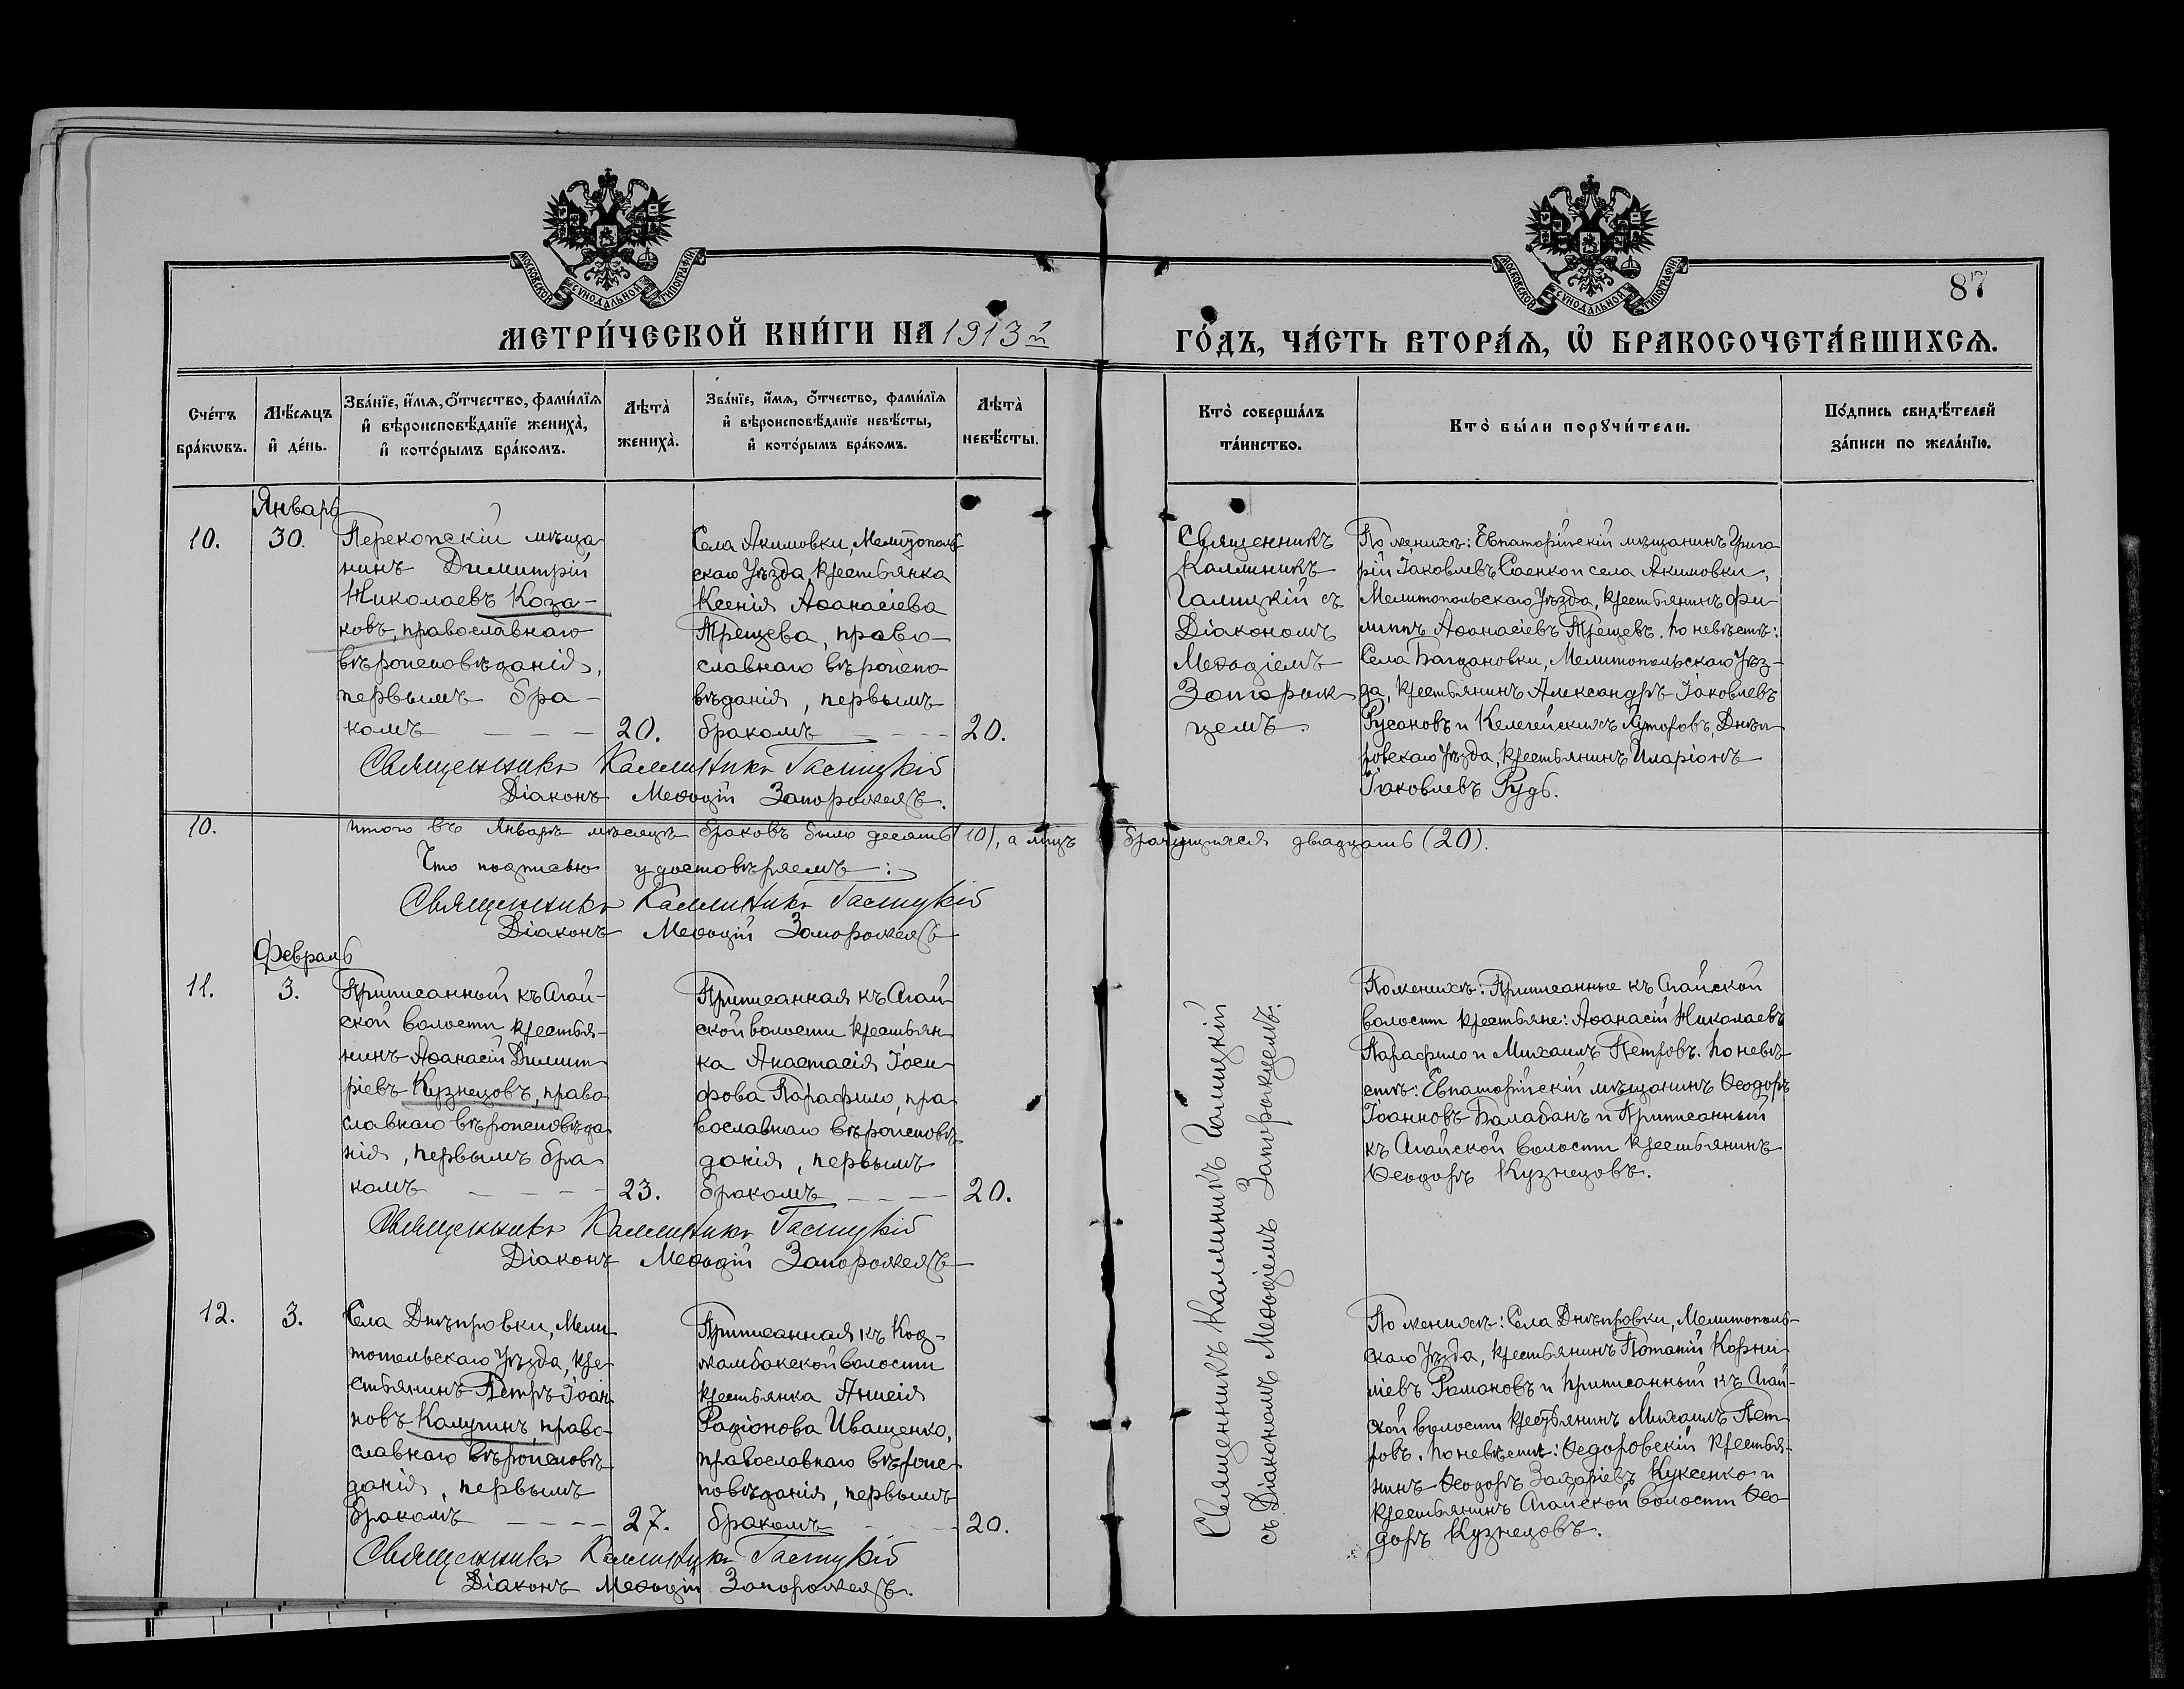 МОСКОВСКОЙ СУНОДАЛЬНОЙ ТИПОГРАФІИ
МОСКОВСКОЙ СУНОДАЛЬНОЙ ТИПОГРАФІИ
87
МЕТРИ́ЧЕСКОЙ КНИ́ГИ НА 1913й ГО́ДЪ, ЧА́СТЬ ВТОРА́Ѧ, Ѡ҆ БРАКОСОЧЕТА́ВШИХСѦ.
Сче́тъ
бра́кѡвъ.
Мѣ́сяцъ
и҆ де́нь.
Зва́нїе, и҆́мѧ, ѻ҆́тчество, фами́лїѧ
и҆ вѣроисповѣ́данїе жениха̀,
и҆ кото́рымъ бра́комъ.
Лѣта̀
жениха̀.
Зва́нїе, и҆́мѧ, ѻ҆́тчество, фами́лїѧ
и҆ вѣроисповѣ́данїе невѣ́сты,
и҆ кото́рымъ бра́комъ.
Лѣта̀
невѣ́сты.
Кто̀ соверша́лъ
та́инство.
Кто̀ бы́ли порꙋчи́тели.
По́дпись свидѣ́телей
за́писи по жела́нїю.
Январь
10.
30.
Перекопскій мѣща-
нинъ Димитрій
Николаевъ Коза-
ковъ, православнаго
вѣроисповѣданія,
первымъ бра-
комъ
20.
Села Акимовки, Мелитополь-
скаго уѣзда, крестьянка
Ксенія Аѳанасіева
Трещева, право-
славнаго вѣроиспо-
вѣданія, первымъ
бракомъ
20.
Священникъ
Каллиникъ
Галицкій съ
Діакономъ
Меѳодіемъ
Запорож-
цемъ.
По женихѣ: Евпаторійскій мѣщанинъ Григо-
рій Іаковлевъ Саенко и села Акимовки,
Мелитопольскаго уѣзда, крестьянинъ Фи-
липпъ Аѳанасіевъ Трещевъ. По невѣстѣ:
Села Богдановки, Мелитопольскаго уѣз-
да, крестьянинъ Александръ Іаковлевъ
Русановъ и Келегейскихъ хуторовъ, Днѣп-
ровскаго уѣзда, крестьянинъ Иларіонъ
Іаковлевъ Рудь.
Священникъ Каллиникъ Галицкій
Діаконъ Меѳодій Запорожецъ.
10.
Итого въ Январѣ мѣсяцѣ браковъ было десять (10), а лицъ брачущихся двадцать (20).
Что подписью удостовѣряемъ:
Священникъ Каллиникъ Галицкій
Діаконъ Меѳодій Запорожецъ
Февраль
11.
3.
Приписанный къ Агай-
ской волости крестья-
нинъ Аѳанасій Димит-
ріевъ Кузнецовъ, право-
славнаго вѣроисповѣда-
нія, первымъ бра-
комъ
23.
Приписанная къ Агай-
ской волости крестьян-
ка Анастасія Іоси-
фова Парафило, пра-
вославнаго вѣроисповѣ-
данія, первымъ
бракомъ
20.
Священникъ Каллиникъ Галицкій
съ Діакономъ Меѳодіемъ Запорожцемъ.
По женихѣ: Приписанные къ Агайской
волости крестьяне: Аѳанасій Николаевъ
Парафило и Михаилъ Петровъ. По невѣ-
стѣ: Евпаторійскій мѣщанинъ Ѳеодоръ
Іоанновъ Балабанъ и Приписанный
къ Агайской волости крестьянинъ
Ѳеодоръ Кузнецовъ.
Священникъ Каллиникъ Галицкій
Діаконъ Меѳодій Запорожецъ
12.
3.
Села Днѣпровки, Мели-
топольскаго уѣзда, кре-
стьянинъ Петръ Іоан-
новъ Калугинъ, право-
славнаго вѣроисповѣ-
данія, первымъ
бракомъ
27.
Приписанная къ Код-
жамбакской волости
крестьянка Анисія
Радіонова Иващенко,
православнаго вѣроис-
повѣданія, первымъ
бракомъ
20.
По женихѣ: Села Днѣпровки, Мелитополь-
скаго уѣзда, крестьянинъ Потапій Корни-
ліевъ Рамановъ и приписанный къ Агай-
ской волости крестьянинъ Михаилъ Пет-
ровъ. По невѣстѣ: Ѳедоровскій крестья-
нинъ Ѳеодоръ Захаріевъ Куксенко и
крестьянинъ Агайской волости Ѳео-
доръ Кузнецовъ.
Священникъ Каллиникъ Галицкій
Діаконъ Меѳодій Запорожецъ.